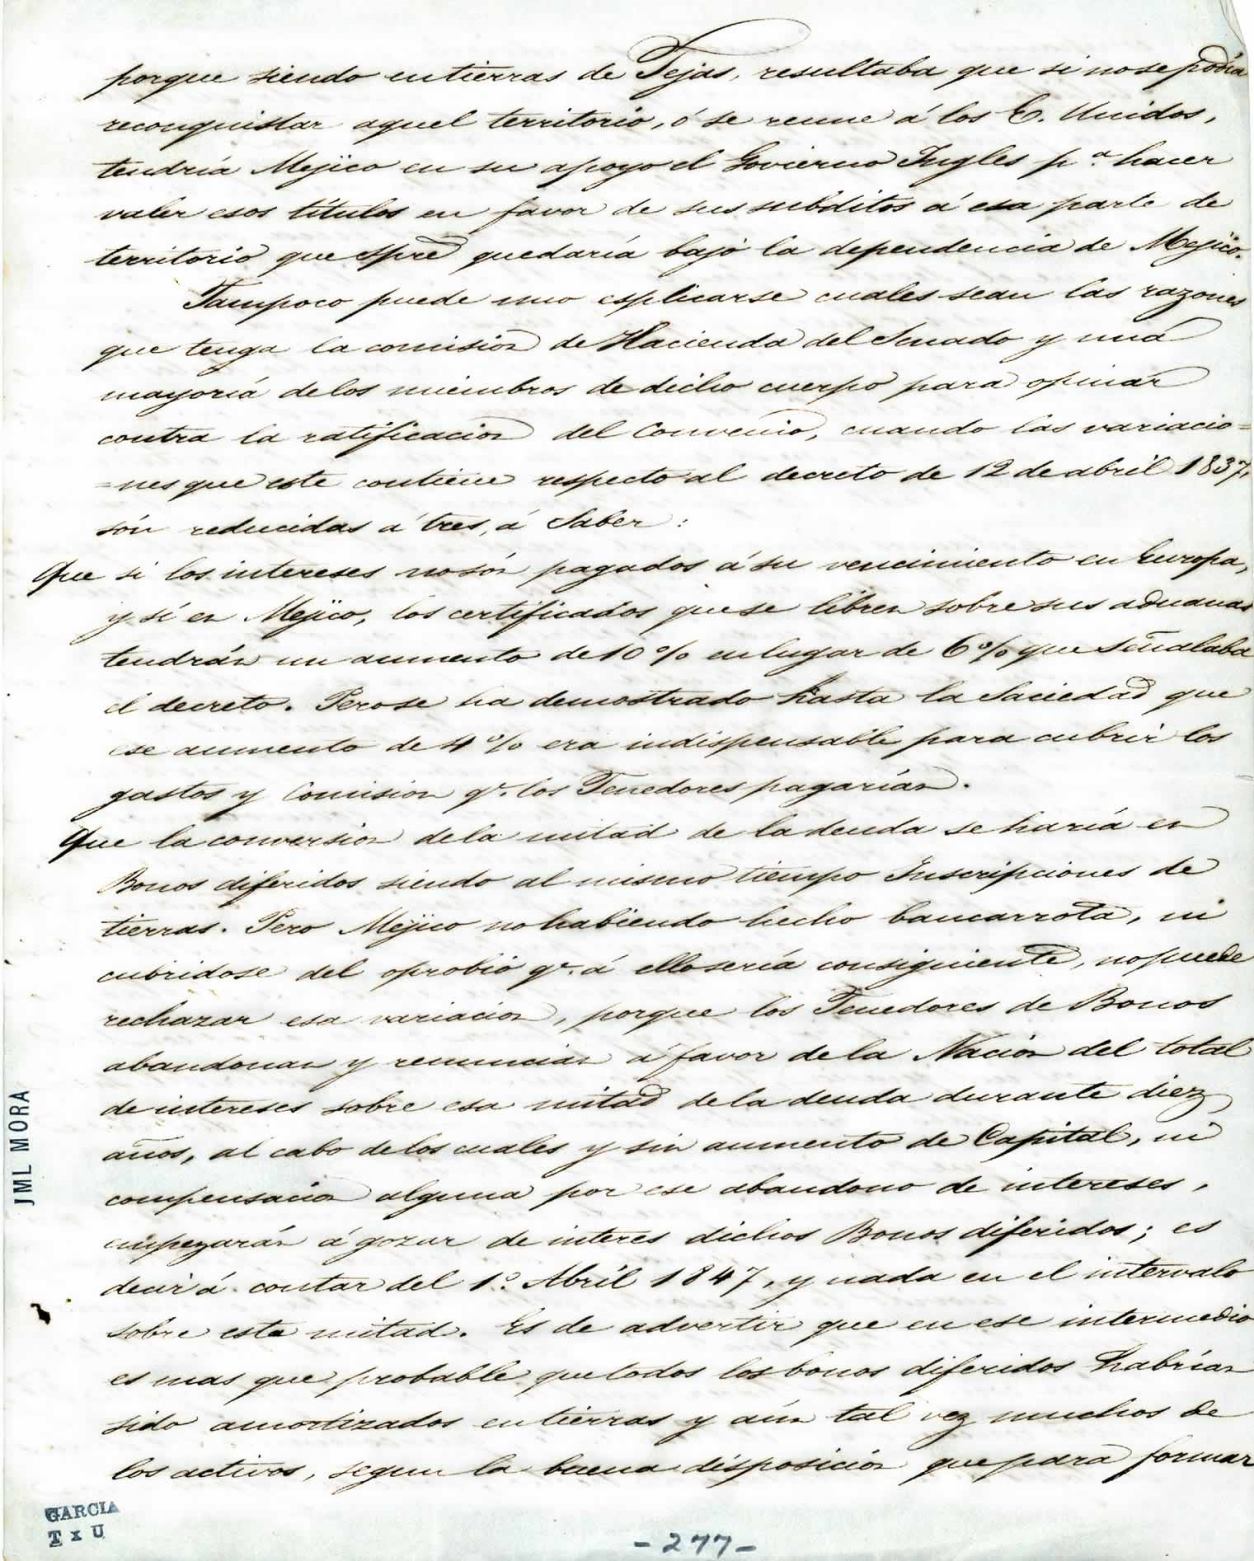 porque siendo en tierras de Tejas, resultaba que si no se podia
reconquistar aquel territorio, ó se reune á los E. Unidos,
tendría Mejico en su apoyo el Govierno Ingles p.ª hacer
valer esos títulos en favor de sus subditos á esa parte de
territorio que spre quedaría bajo la dependencia de Mejico.
Tampoco puede uno esplicarse cuales sean las razones
que tenga la comision de Hacienda del Senado y una
mayoría de los miembros de dicho cuerpo para opinar
contra la ratificacion del Convenio, cuando las variacio=
=nes que este contiene respecto al decreto de 12 de abril 1837,
són reducidas á tres, á Saber:
Que si los intereses no són pagados á su vencimiento en Europa,
y sí en Mejico, los certificados que se libren sobre sus aduanas
tendrán un aumento de 10 % en lugar de 6 % que Señalaba
el decreto. Pero se ha demostrado hasta la Saciedad que
ese aumento de 4 % era indispensable para cubrir los
gastos y Comision q.e los Tenedores pagarían.
Que la conversion de la mitad de la deuda se haría en
Bonos diferidos siendo al mismo tiempo Inscripciones de
tierras. Pero Mejico no habiendo hecho bancarrota, ni
cubridose del oprobio q.e á ello sería consiguiente, no puede
rechazar esa variacion, porque los Tenedores de Bonos
abandonan y renuncian á favor de la Nación del total
de intereses sobre esa mitad de la deuda durante diez
años, al cabo de los cuales y sin aumento de Capital, ni
compensacion alguna por ese abandono de intereses,
empezarán á gozar de interes dichos Bonos diferidos; es
decir á contar del 1.º Abril 1847, y nada en el intervalo
sobre esta mitad. Es de advertir que en ese intermedio
es mas que probable que todos los bonos diferidos habrían
sido amortizados en tierras y aún tal vez muchos de
los activos, segun la buena disposición que para formar
JML MORA
GARCIA
T x U
- 277 -